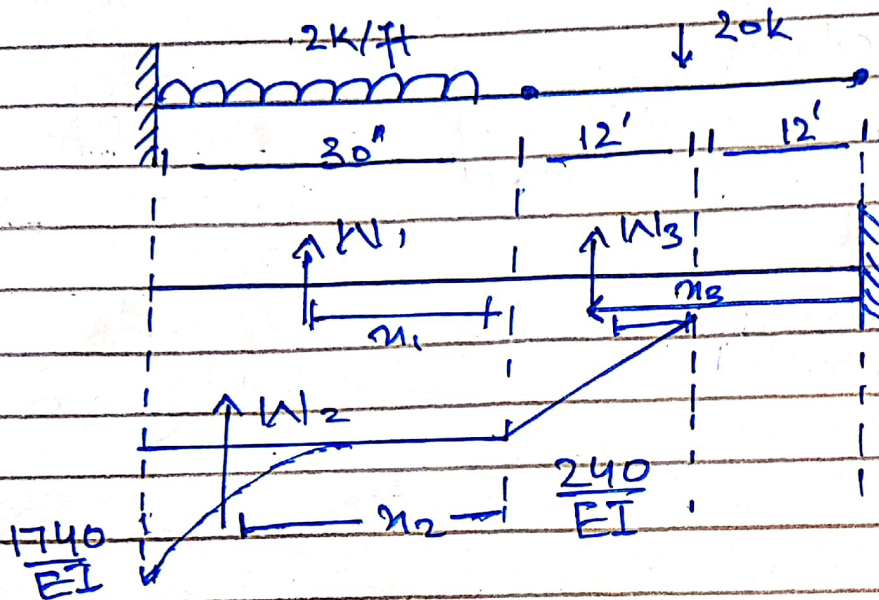 2K/ft ↓ 20k
30" 12' 12'
W₁ W₃
x₁ x₃
W₂
x₂
240
EI
1740
EI